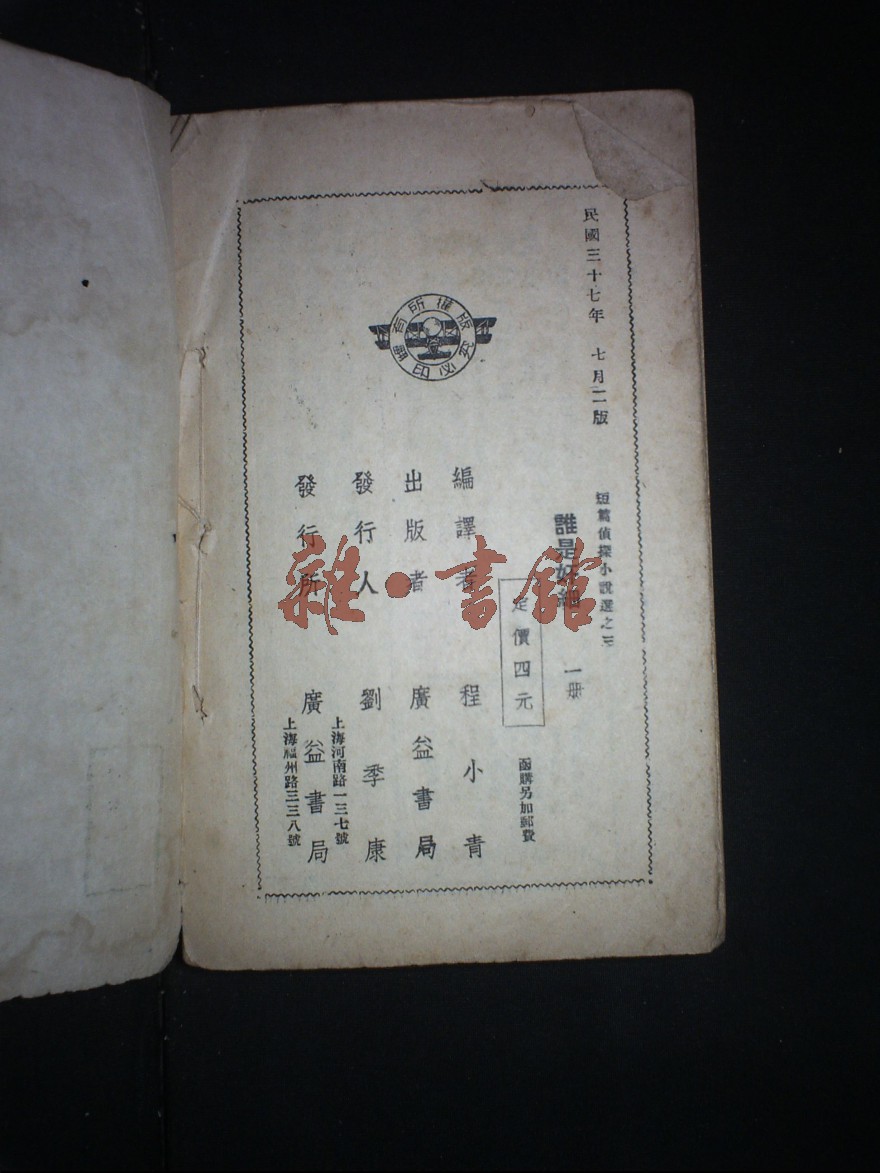 民國三十七年 七月二版
短篇偵探小說選之三
誰是奸細 一册
定價四元
函購另加郵費
編譯者 程小青
出版者 廣益書局
發行人 劉季康
發行所 廣益書局
上海河南路一三七號
上海福州路三三八號
版權所有
翻印必究
雜·書館